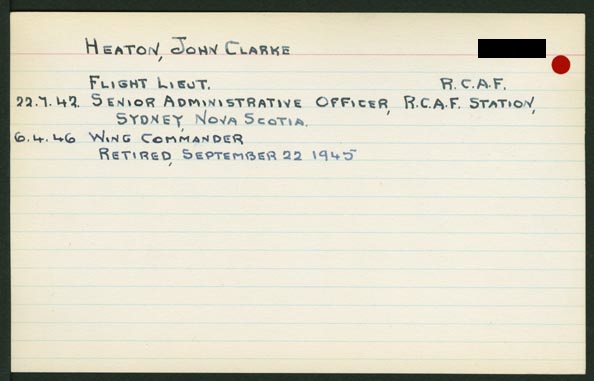 HEATON, JOHN CLARKE
FLIGHT LIEUT. R.C.A.F.
22.7.42. SENIOR ADMINISTRATIVE OFFICER, R.C.A.F. STATION,
SYDNEY, NOVA SCOTIA.
6.4.46 WING COMMANDER
RETIRED, SEPTEMBER 22 1945